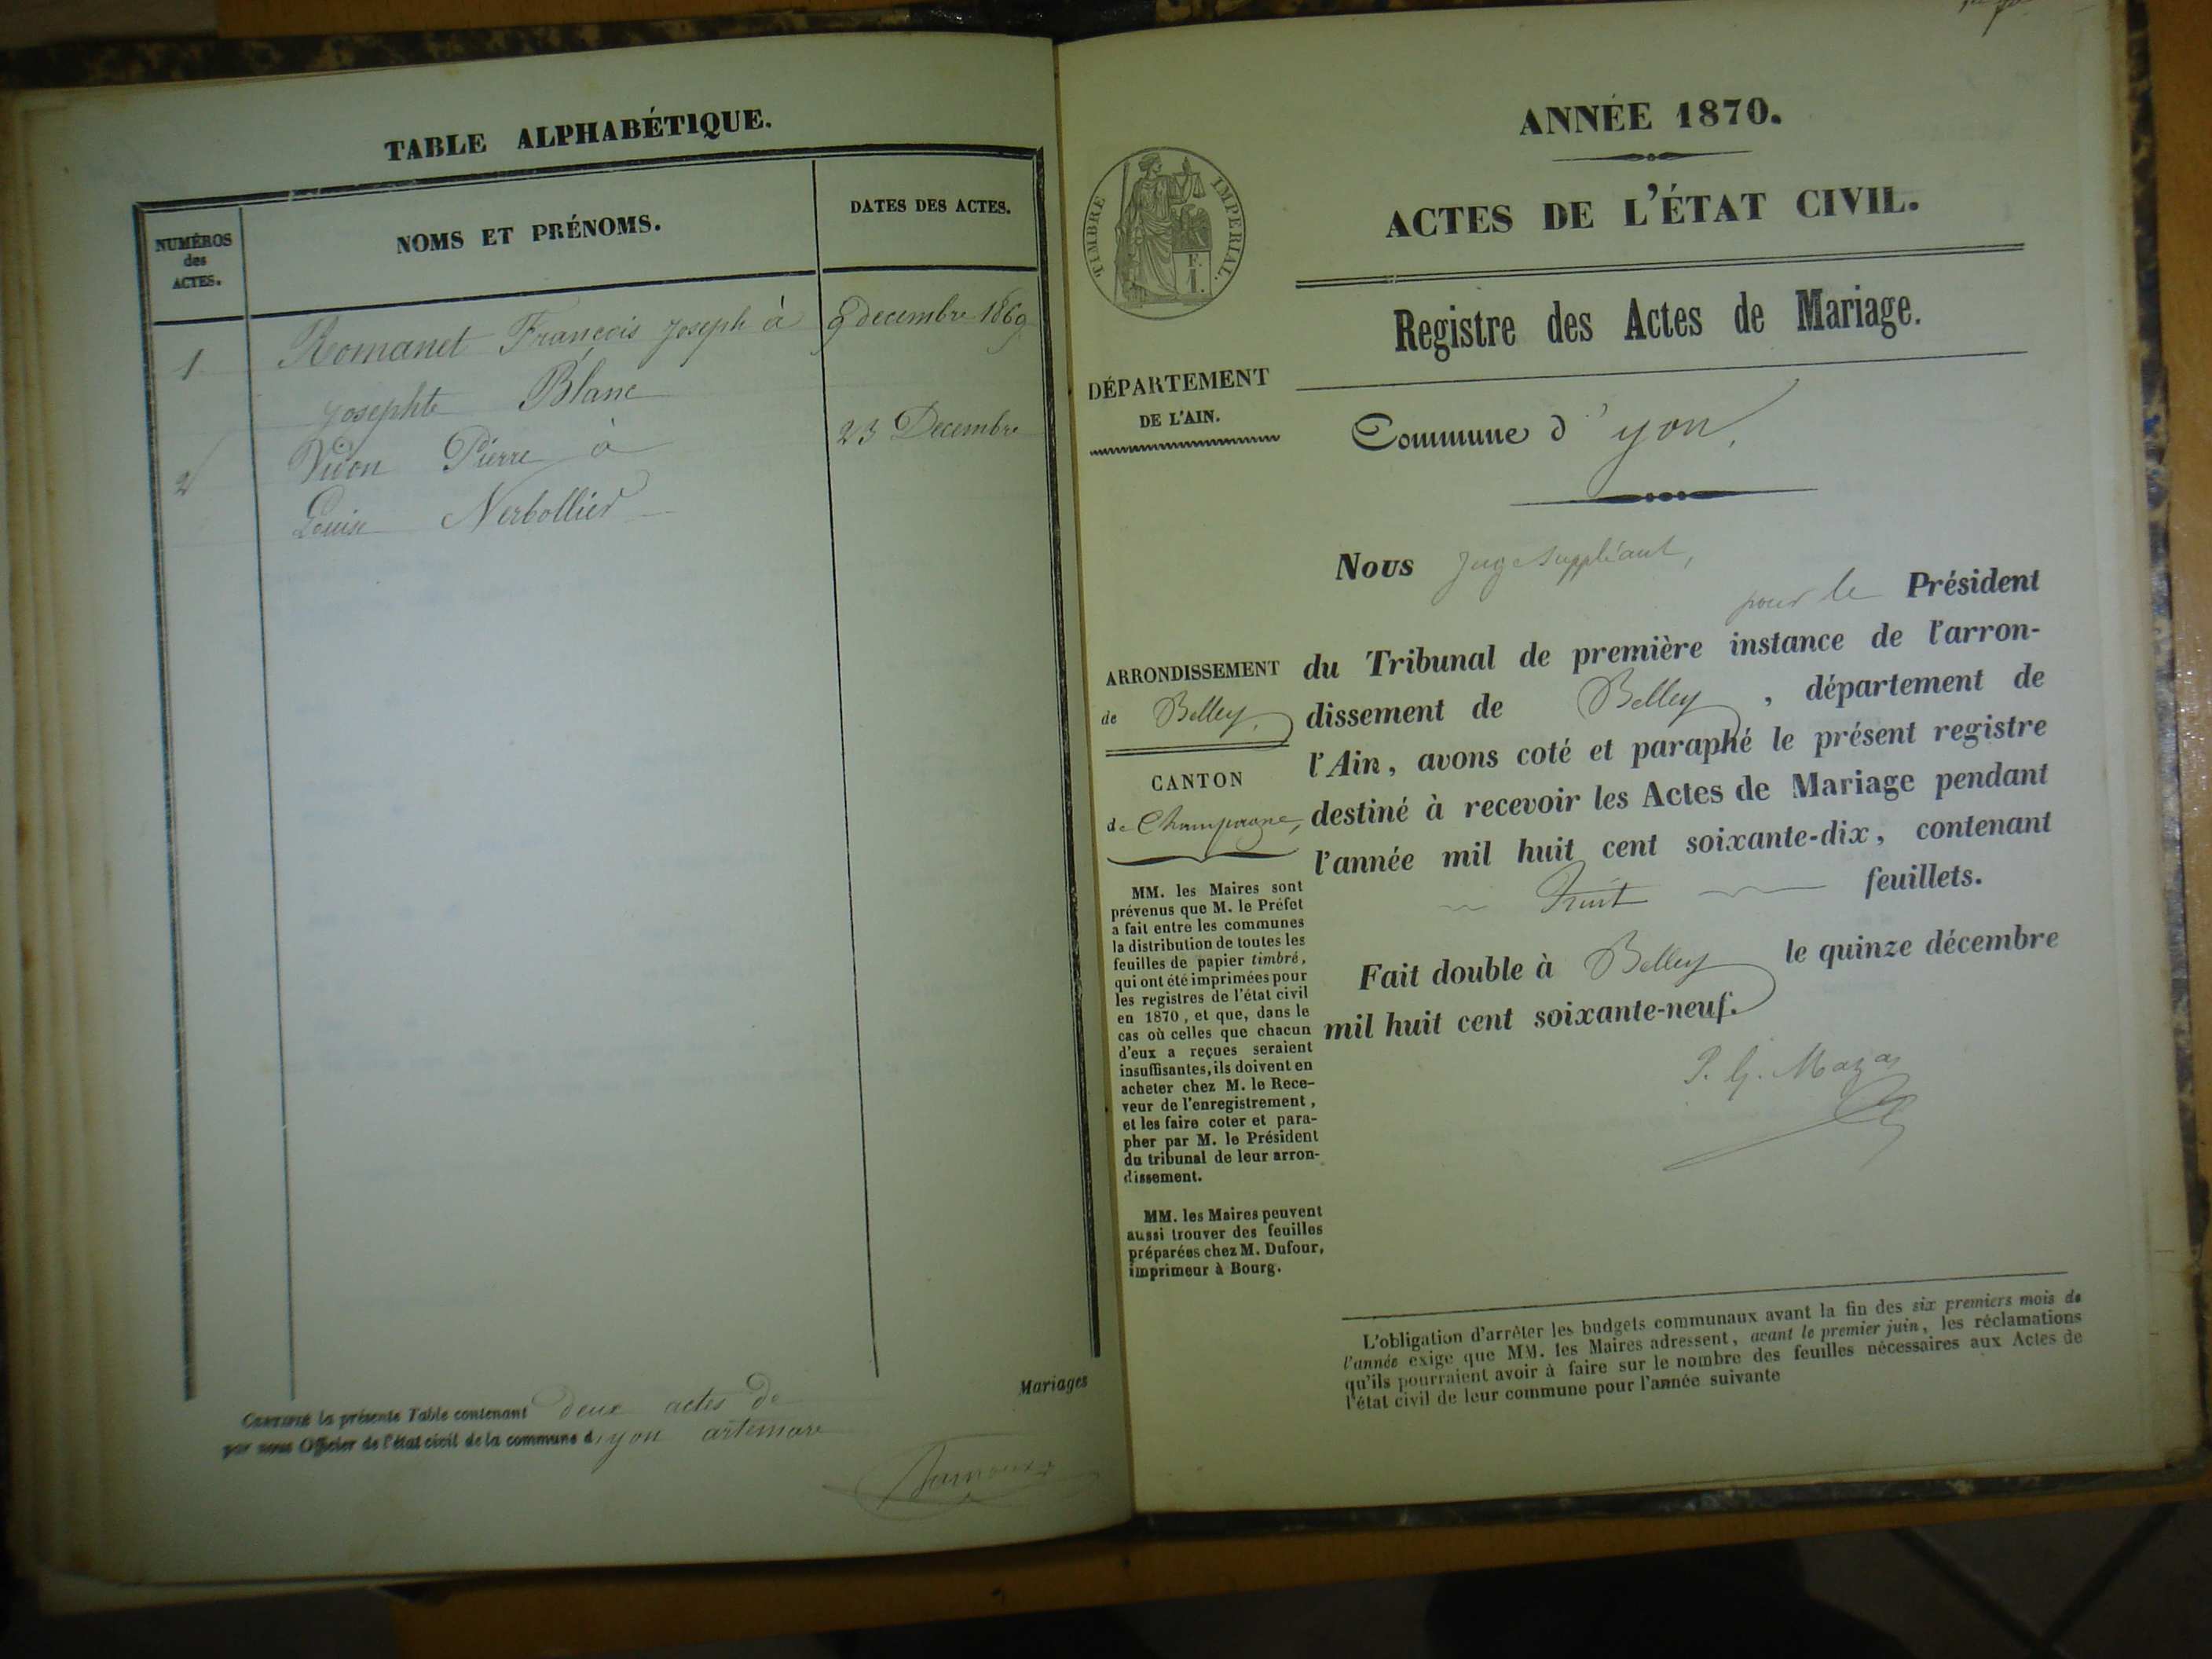 TABLE ALPHABÉTIQUE.
NUMÉROS
des
ACTES.
NOMS ET PRÉNOMS.
DATES DES ACTES.
1 Romanet François Joseph à 9 decembre 1869
Josephte Blanc
2 Pierre à 23 Decembre
Louise Nerbollier
CERTIFIÉ la présente Table contenant deux actes de Mariages
par nous Officier de l'état civil de la commune d'yon artemare
ANNÉE 1870.
ACTES DE L'ÉTAT CIVIL.
TIMBRE IMPERIAL.
F.
1.
Registre des Actes de Mariage.
DÉPARTEMENT
DE L'AIN.
Commune d'yon,
Nous Juge Suppléant,
pour le Président
du Tribunal de première instance de l'arron-
dissement de Belley, département de
l'Ain, avons coté et paraphé le présent registre
destiné à recevoir les Actes de Mariage pendant
l'année mil huit cent soixante-dix, contenant
huit feuillets.
Fait double à Belley le quinze décembre
mil huit cent soixante-neuf.
P. G. Mazas
ARRONDISSEMENT
de Belley.
CANTON
de Champagne,
MM. les Maires sont
prévenus que M. le Préfet
a fait entre les communes
la distribution de toutes les
feuilles de papier timbré,
qui ont été imprimées pour
les registres de l'état civil
en 1870, et que, dans le
cas où celles que chacun
d'eux a reçues seraient
insuffisantes, ils doivent en
acheter chez M. le Rece-
veur de l'enregistrement,
et les faire coter et para-
pher par M. le Président
du tribunal de leur arron-
dissement.
MM. les Maires peuvent
aussi trouver des feuilles
préparées chez M. Dufour,
imprimeur à Bourg.
L'obligation d'arrêter les budgets communaux avant la fin des six premiers mois de
l'année exige que MM. les Maires adressent, avant le premier juin, les réclamations
qu'ils pourraient avoir à faire sur le nombre des feuilles nécessaires aux Actes de
l'état civil de leur commune pour l'année suivante